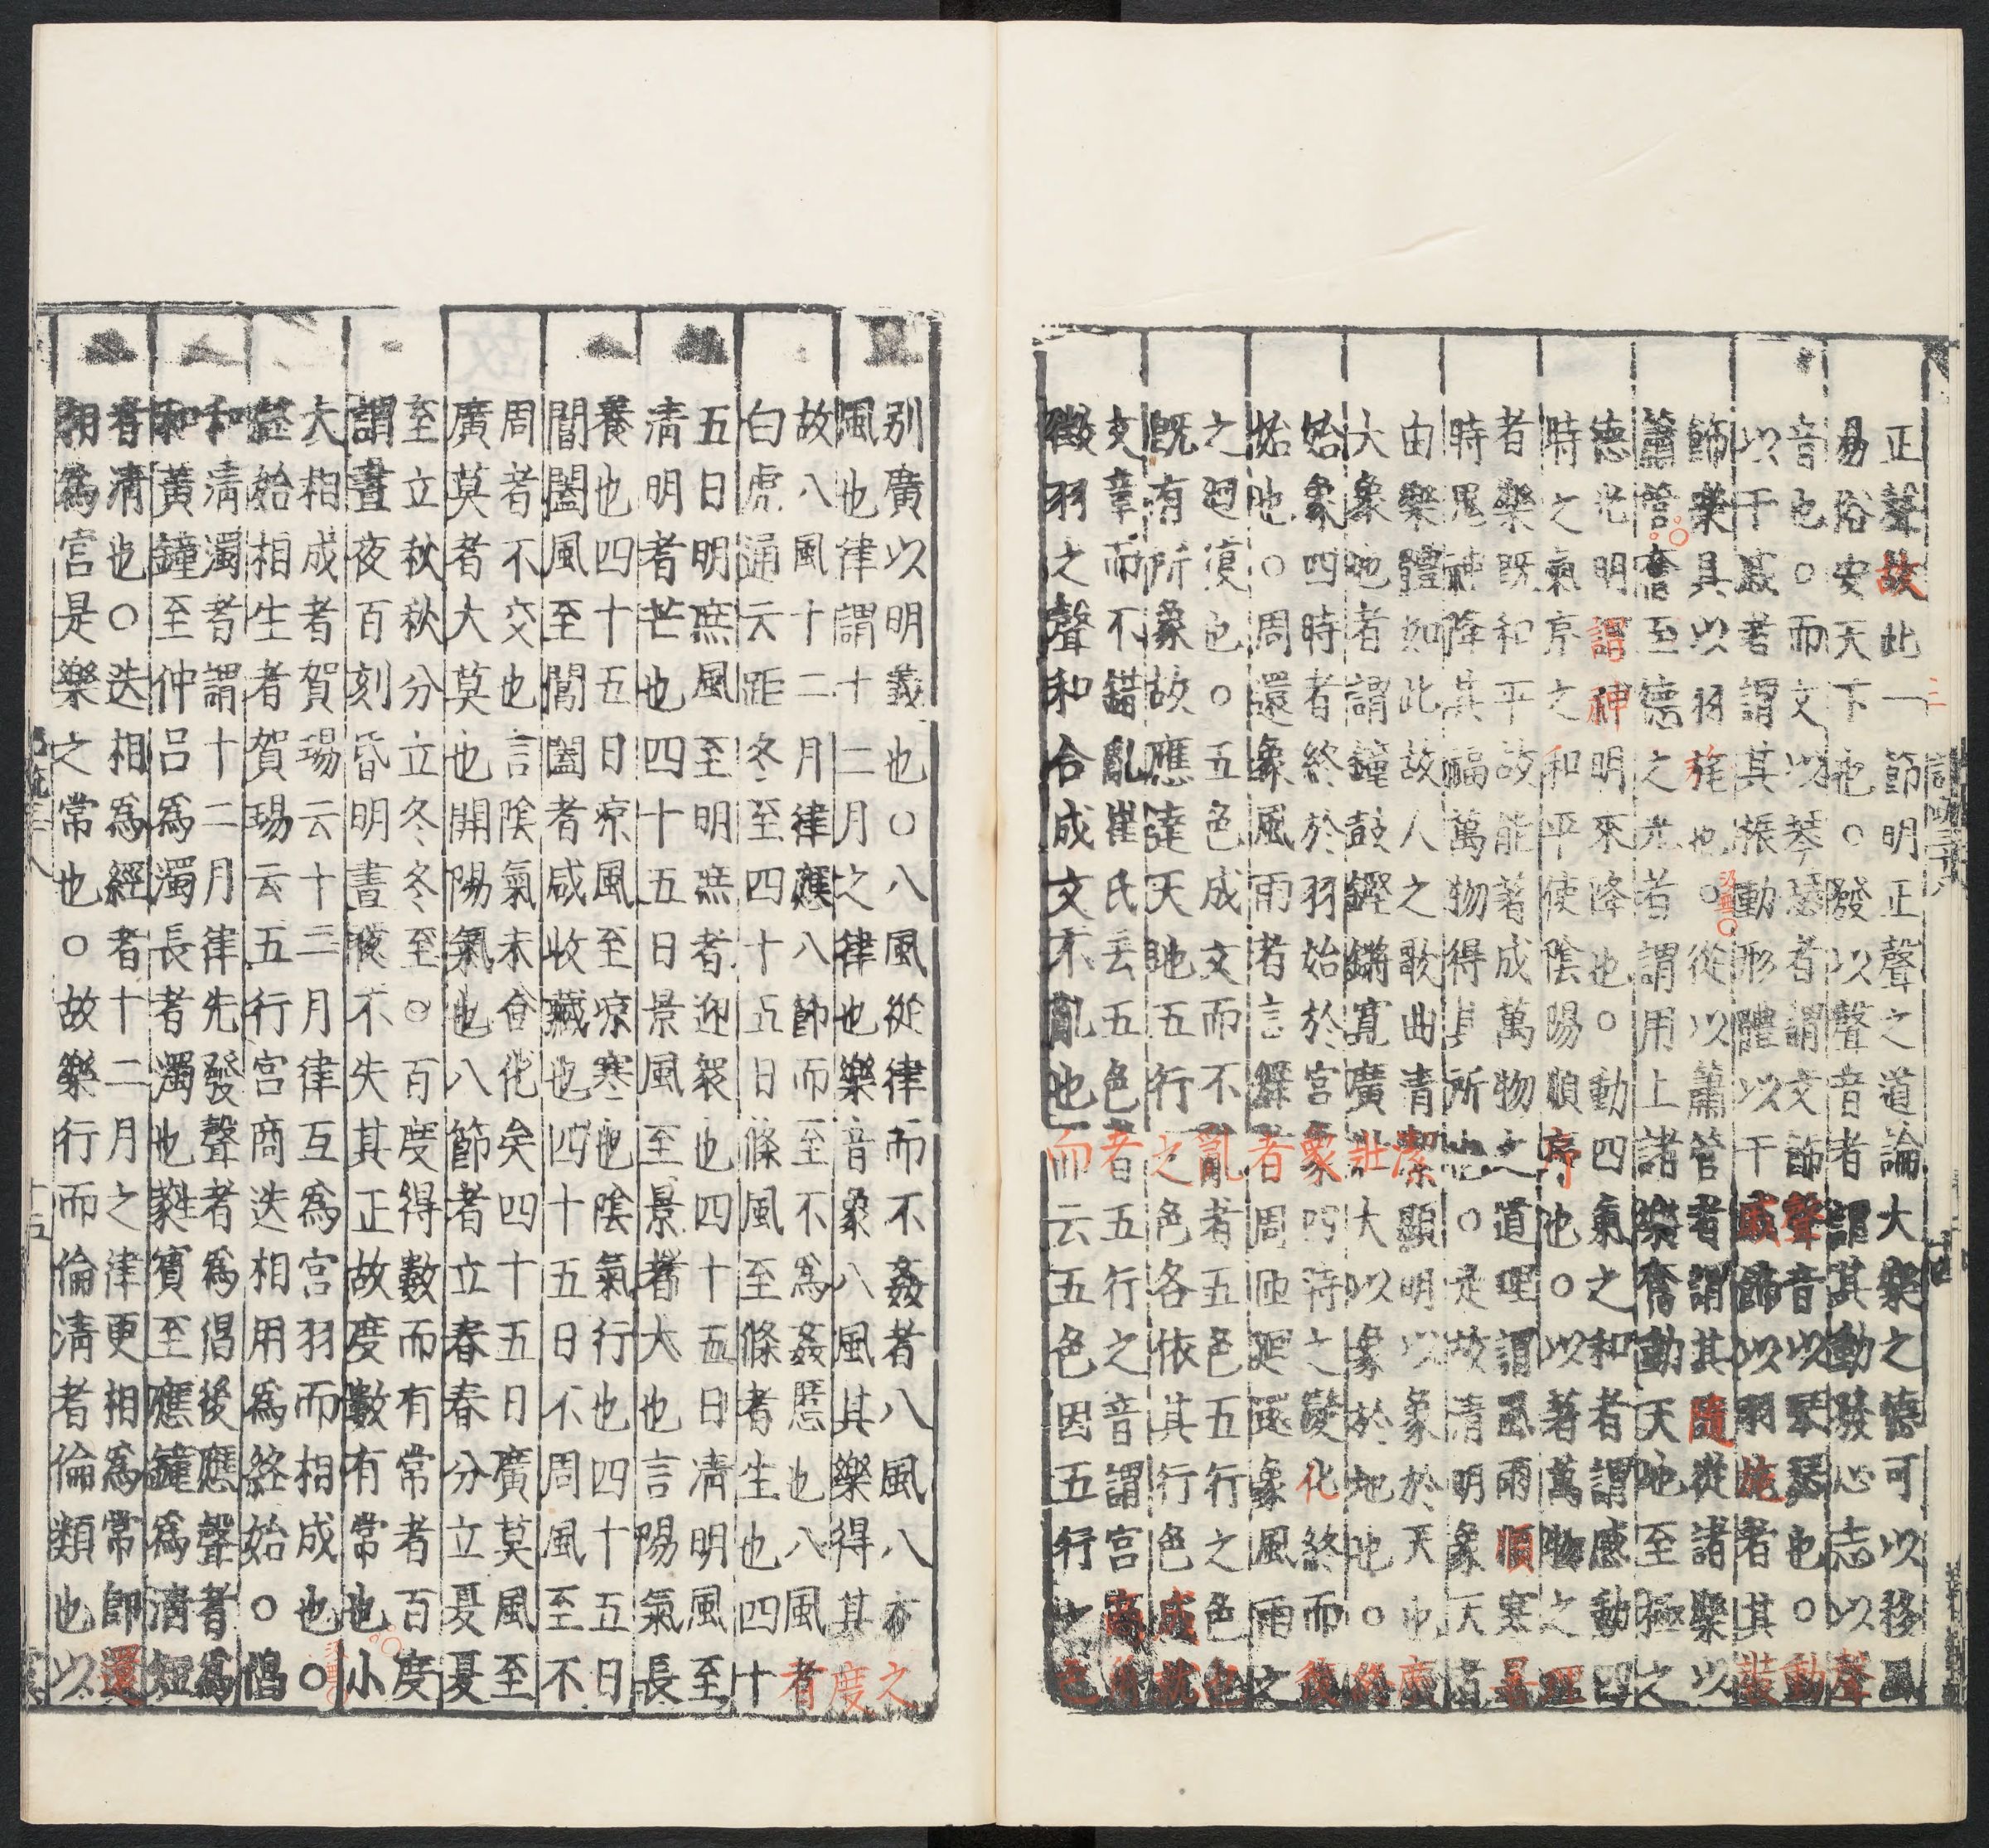 正聲故此一節明正聲之道論大樂之德可以移風
易俗安天下也○發以聲音者謂其動發心志以聲
音也○而文以琴瑟者謂文節聲音以琴瑟也○動
以干戚者謂其振動形體以干戚飾以羽旄者其裝
飾樂具以羽旄也○從以簫管者謂其隨從諸樂以
簫管奮至德之光者謂用上諸樂奮動天地至極之
德光明謂神明來降也○動四氣之和者謂感動四
時之氣序之和平使陰陽順序也○以著萬物之理
者樂既和平故能著成萬物之道理謂風雨順寒暑
時鬼神降其福萬物得其所也○是故清明象天者
由樂體如此故人之歌曲清潔顯明以象於天也廣
大象地者謂鐘鼓鏗鏘寬廣壯大以象於地也○終
始象四時者終於羽始於宮象四時之變化終而復
始也○周還象風雨者言舞者周匝迴還象風雨之
之迴復也○五色成文而不亂者五色五行之色也
既有所象故應達天地五行之色各依其行色成就
文章而不錯亂崔氏云五色者五行之音謂宮商角
徵羽之聲和合成文不亂也而云五色因五行之色
別廣以明義也○八風從律而不姦者八風八方之
風也律謂十二月之律也樂音象八風其樂得其度
故八風十二月律應八節而至不為姦慝也八風者
白虎通云距冬至四十五日條風至條者生也四十
五日明庶風至明庶者迎衆也四十五日清明風至
清明者芒也四十五日景風至景者大也言陽氣長
養也四十五日凉風至凉寒也陰氣行也四十五日
閶闔風至閶闔者咸收藏也四十五日不周風至不
周者不交也言陰氣未合化矣四十五日廣莫風至
廣莫者大莫也開陽氣也八節者立春春分立夏夏
至立秋秋分立冬冬至○百度得數而有常者百度
謂晝夜百刻昏明晝夜不失其正故度數有常也小
大相成者賀瑒云十二月律互為宮羽而相成也○
終始相生者賀瑒云五行宮商迭相用為終始○倡
和清濁者謂十二月律先發聲者為倡後應聲者為
和黃鐘至仲呂為濁長者濁也蕤賓至應鐘為清短
者清也○迭相為經者十二月之律更相為常即還
相為宮是樂之常也○故樂行而倫清者倫類也以